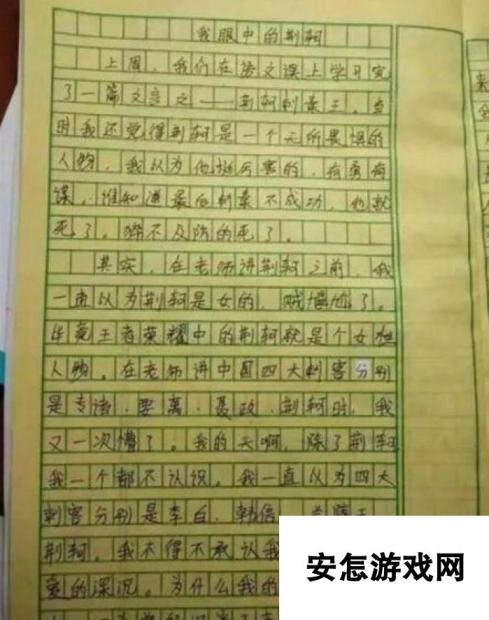 我眼中的荆轲
上周,我们在语文课上学习完
了一篇文言文——荆轲刺秦王。当
时我还觉得荆轲是一个无所畏惧的
人物,我以为他挺厉害的,有勇有
谋,谁知道最后刺秦不成功,他就
死了。猝不及防的死了。
其实,在老师讲荆轲之前,我
一直以为荆轲是女的,贼尴尬了。
毕竟王者荣耀中的荆轲就是个女性
人物。在老师讲中国四大刺客分别
是专诸、要离、聂政、荆轲时,我
又一次懵了。我的天啊,除了荆轲
我一个都不认识。我一直以为四大
刺客分别是李白、韩信、兰陵王
荆轲。我不得不承认我
爱的深沉。为什么我的
安怎游戏网